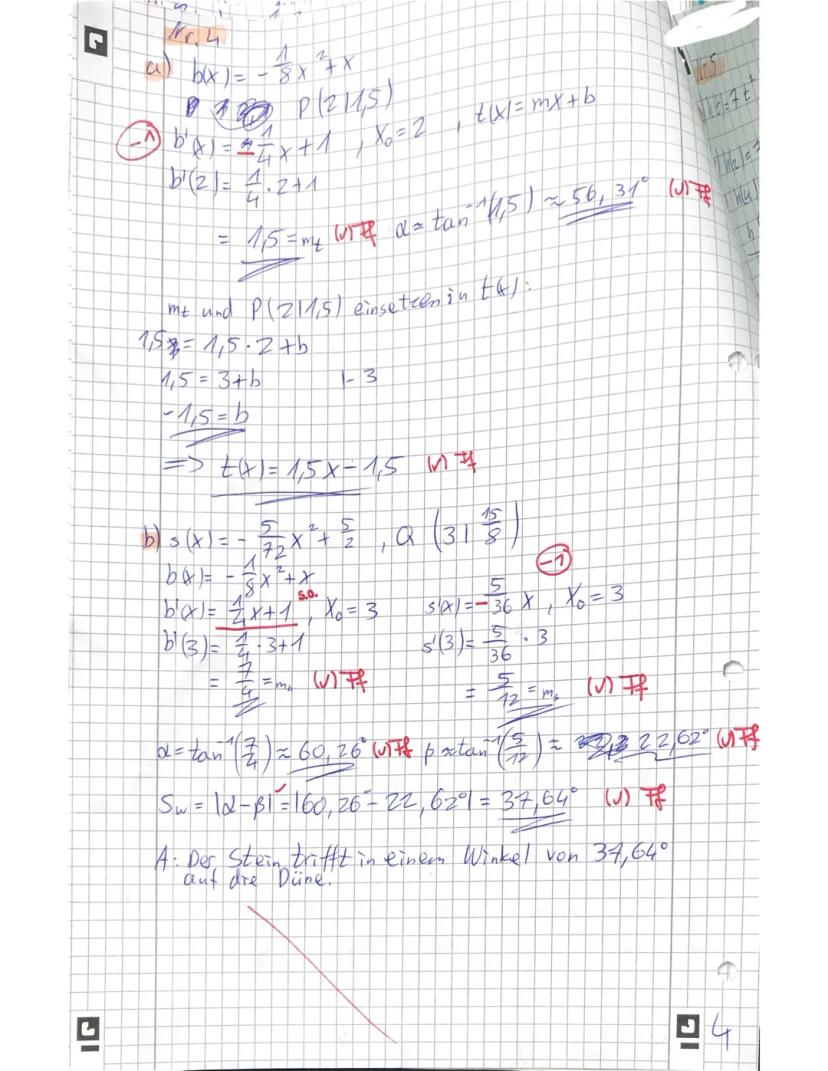 Nr. 4
a) b(x) = -1/8 x² + x
P(2|1,5)
-1 b'(x) = -1/4 x + 1 , x₀ = 2 , t(x) = mx + b
b'(2) = 1/4 · 2 + 1
= 1,5 = mt (√) Ff α = tan⁻¹(1,5) ≈ 56,31° (√) Ff
mt und P(2|1,5) einsetzen in t(x):
1,5 = 1,5 · 2 + b
1,5 = 3 + b |- 3
-1,5 = b
=> t(x) = 1,5x - 1,5 (√) Ff
b) s(x) = -5/72 x² + 5/2 , Q (3|15/8)
b(x) = -1/8 x² + x
-1
b'(x) = 1/4 x + 1 s.o. , x₀ = 3 s'(x) = -5/36 x , x₀ = 3
b'(3) = 1/4 · 3 + 1 s'(3) = 5/36 · 3
= 7/4 = mb (√) Ff = 5/12 = ms (√) Ff
α = tan⁻¹(7/4) ≈ 60,26° (√) Ff β = tan⁻¹(5/12) ≈ 22,62° (√) Ff
Sw = |α - β| √ = |60,26° - 22,62°| = 37,64° (√) Ff
A: Der Stein trifft in einem Winkel von 37,64°
auf die Düne.
4